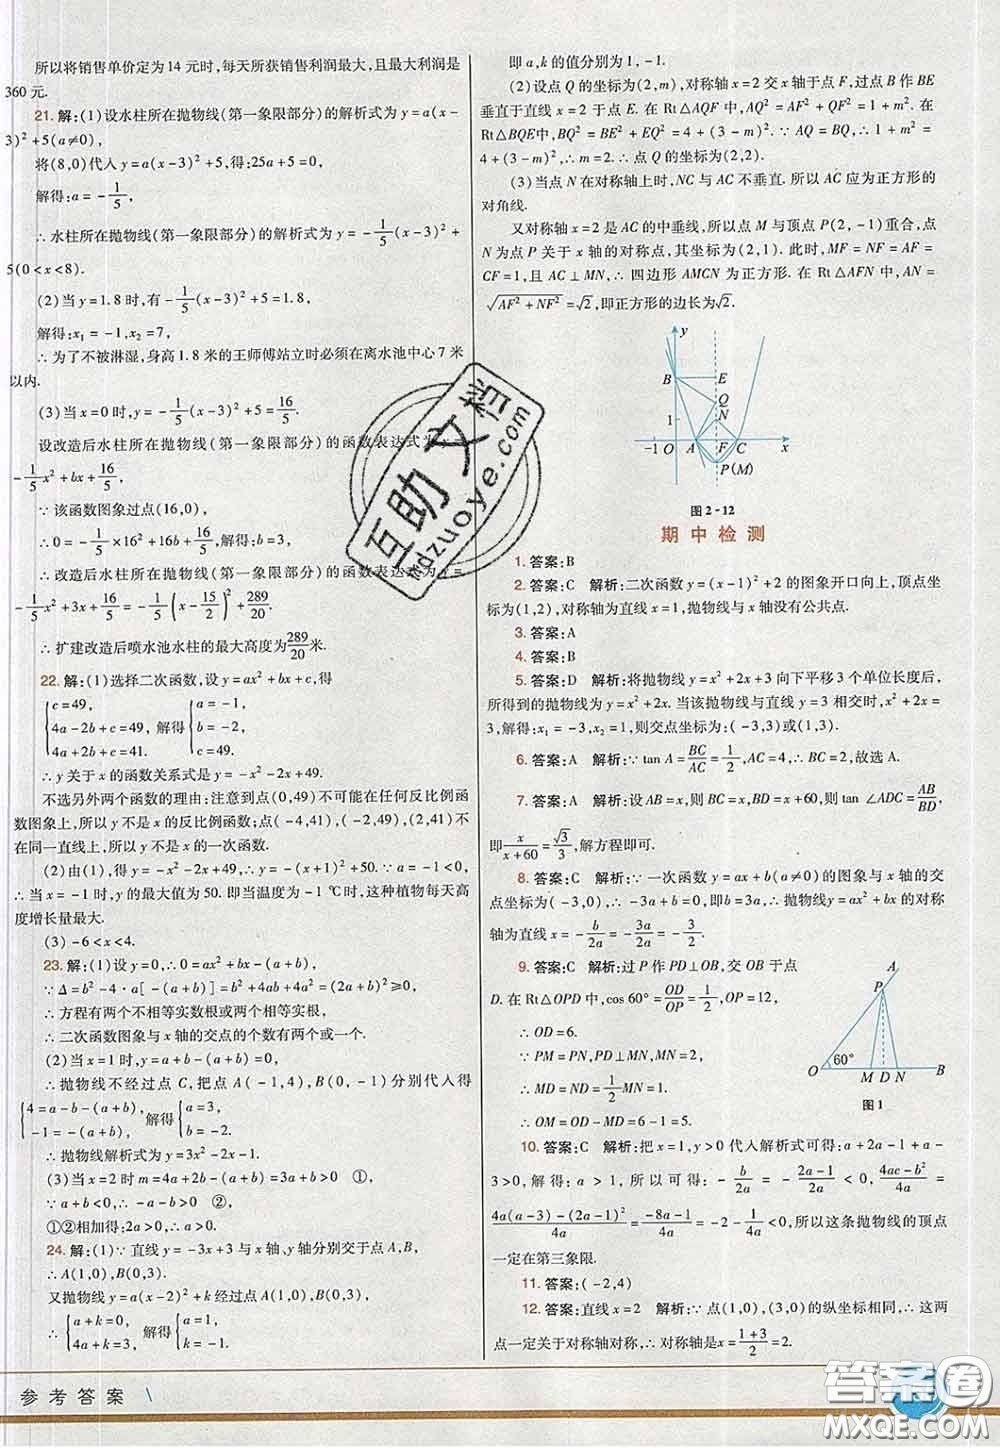 所以将销售单价定为 14 元时,每天所获销售利润最大,且最大利润是
360 元.
21. 解:(1)设水柱所在抛物线(第一象限部分)的解析式为 y=a(x-
3)²+5(a≠0),
将(8,0)代入 y=a(x-3)²+5,得:25a+5=0,
解得:a=-1/5,
∴水柱所在抛物线(第一象限部分)的解析式为 y=-1/5(x-3)²+
5(0<x<8).
(2)当 y=1.8 时,有-1/5(x-3)²+5=1.8,
解得:x₁=-1,x₂=7,
∴为了不被淋湿,身高 1.8 米的王师傅站立时必须在离水池中心 7 米
以内.
(3)当 x=0 时,y=-1/5(x-3)²+5=16/5.
设改造后水柱所在抛物线(第一象限部分)的函数表达式为 y=
-1/5x²+bx+16/5,
∵该函数图象过点(16,0),
∴0=-1/5×16²+16b+16/5,解得:b=3,
∴改造后水柱所在抛物线(第一象限部分)的函数表达式为 y=
-1/5x²+3x+16/5=-1/5(x-15/2)²+289/20.
∴扩建改造后喷水池水柱的最大高度为289/20米.
22. 解:(1)选择二次函数,设 y=ax²+bx+c,得
{c=49, 4a-2b+c=49, 4a+2b+c=41. 解得 {a=-1, b=-2, c=49.
∴y 关于 x 的函数关系式是 y=-x²-2x+49.
不选另外两个函数的理由:注意到点(0,49)不可能在任何反比例函
数图象上,所以 y 不是 x 的反比例函数;点(-4,41),(-2,49),(2,41)不
在同一直线上,所以 y 不是 x 的一次函数.
(2)由(1),得 y=-x²-2x+49,∴y=-(x+1)²+50.∵a=-1<0,
∴当 x=-1 时,y 的最大值为 50. 即当温度为-1 ℃时,这种植物每天高
度增长量最大.
(3)-6<x<4.
23. 解:(1)设 y=0,∴0=ax²+bx-(a+b),
∵Δ=b²-4·a[-(a+b)]=b²+4ab+4a²=(2a+b)²≥0,
∴方程有两个不相等实数根或两个相等实根,
∴二次函数图象与 x 轴的交点的个数有两个或一个.
(2)当 x=1 时,y=a+b-(a+b)=0,
∴抛物线不经过点 C,把点 A(-1,4),B(0,-1)分别代入得
{4=a-b-(a+b), -1=-(a+b), 解得{a=3, b=-2.
∴抛物线解析式为 y=3x²-2x-1.
(3)当 x=2 时 m=4a+2b-(a+b)=3a+b>0 ①,
∵a+b<0,∴-a-b>0 ②,
①②相加得:2a>0,∴a>0.
24. 解:(1)∵直线 y=-3x+3 与 x 轴、y 轴分别交于点 A,B,
∴A(1,0),B(0,3).
又抛物线 y=a(x-2)²+k 经过点 A(1,0),B(0,3),
∴{a+k=0, 4a+k=3, 解得{a=1, k=-1.
即 a,k 的值分别为 1,-1.
(2)设点 Q 的坐标为(2,m),对称轴 x=2 交 x 轴于点 F,过点 B 作 BE
垂直于直线 x=2 于点 E. 在 Rt△AQF 中,AQ²=AF²+QF²=1+m². 在
Rt△BQE中,BQ²=BE²+EQ²=4+(3-m)².∵AQ=BQ,∴1+m²=
4+(3-m)²,∴m=2.∴点 Q 的坐标为(2,2).
(3)当点 N 在对称轴上时,NC 与 AC 不垂直. 所以 AC 应为正方形的
对角线.
又对称轴 x=2 是 AC 的中垂线,所以点 M 与顶点 P(2,-1)重合,点
N 为点 P 关于 x 轴的对称点,其坐标为(2,1). 此时,MF=NF=AF=
CF=1,且 AC⊥MN,∴四边形 AMCN 为正方形. 在 Rt△AFN 中,
√(AF²+NF²)=√2,即正方形的边长为√2.
y
B E
Q
1 N
-1 O A F C x
P(M)
图 2-12
期中检测
1. 答案:B
2. 答案:C 解析:二次函数 y=(x-1)²+2 的图象开口向上,顶点坐
标为(1,2),对称轴为直线 x=1,抛物线与 x 轴没有公共点.
3. 答案:A
4. 答案:B
5. 答案:D 解析:将抛物线 y=x²+2x+3 向下平移 3 个单位长度后,
所得到的抛物线为 y=x²+2x. 当该抛物线与直线 y=3 相交时,x²+2x=
3,解得:x₁=-3,x₂=1,则交点坐标为:(-3,3)或(1,3).
6. 答案:A 解析:∵tan A=BC/AC=1/2,AC=4,∴BC=2,故选 A.
7. 答案:A 解析:设 AB=x,则 BC=x,BD=x+60,则 tan ∠ADC=AB/BD,
即x/(x+60)=√3/3,解方程即可.
8. 答案:C 解析:∵一次函数 y=ax+b(a≠0)的图象与 x 轴的交
点坐标为(-3,0),∴-3a+b=0,即b=3a,∴抛物线 y=ax²+bx 的对称
轴为直线 x=-b/2a=-3a/2a=-3/2.
9. 答案:C 解析:过 P 作 PD⊥OB,交 OB 于点
D. 在 Rt△OPD 中,cos 60°=OD/OP=1/2,OP=12,
∴OD=6.
∵PM=PN,PD⊥MN,MN=2,
∴MD=ND=1/2MN=1,
∴OM=OD-MD=6-1=5.
A
P
60°
O M D N B
图 1
10. 答案:C 解析:把 x=1,y>0 代入解析式可得:a+2a-1+a-
3>0,解得:a>1,所以可得:-b/2a=-(2a-1)/2a<0,(4ac-b²)/4a=
(4a(a-3)-(2a-1)²)/4a=(-8a-1)/4a=-2-1/4a<0,所以这条抛物线的顶点
一定在第三象限.
11. 答案:(-2,4)
12. 答案:直线 x=2 解析:∵点(1,0),(3,0)的纵坐标相同,∴这两
点一定关于对称轴对称,∴对称轴是x=(1+3)/2=2.
参考答案
互助文档
Hdzuoye.com
答案圈
MXQE.COM